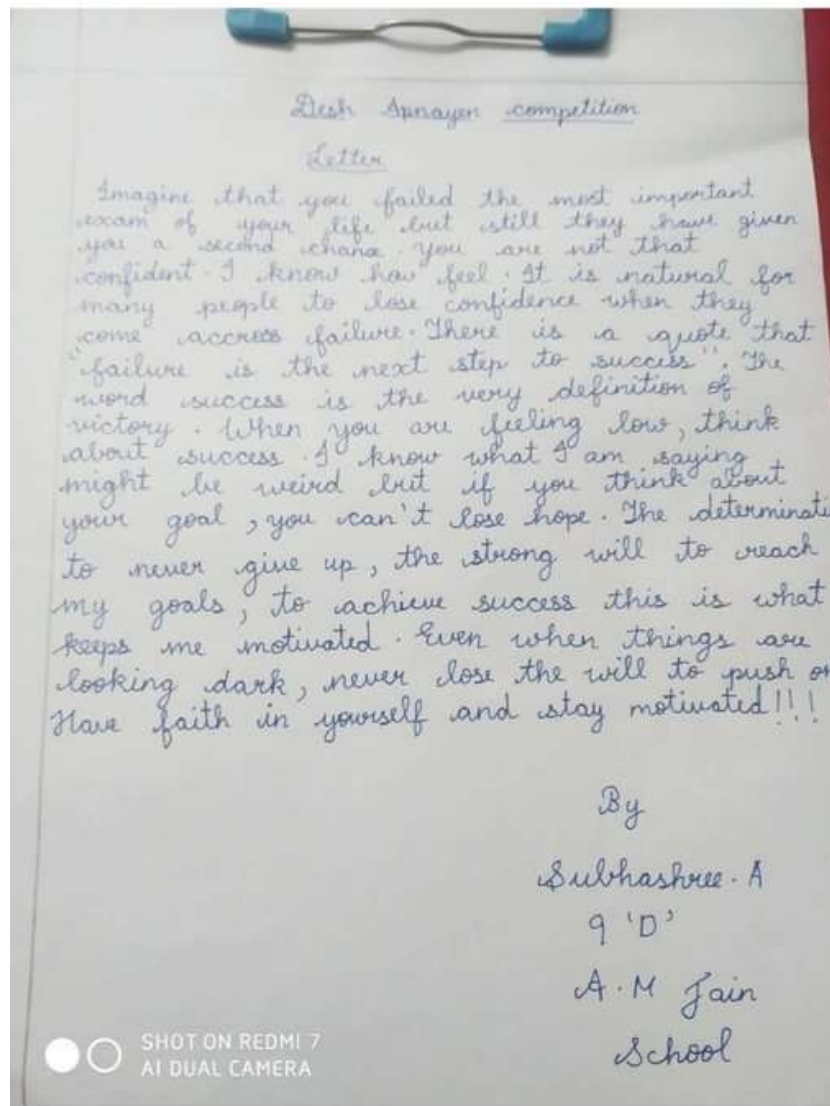 Desh Apnayen competition
Letter
Imagine that you failed the most important
exam of your life but still they have given
you a second chance. You are not that
confident. I know how feel. It is natural for
many people to lose confidence when they
come accross failure. There is a quote that
"failure is the next step to success". The
word success is the very definition of
victory. When you are feeling low, think
about success. I know what I am saying
might be weird but if you think about
your goal, you can't lose hope. The determinati
to never give up, the strong will to reach
my goals, to achieve success this is what
keeps me motivated. Even when things are
looking dark, never lose the will to push on
Have faith in yourself and stay motivated!!!
By
Subhashree. A
9 'D'
A. M Jain
School
SHOT ON REDMI 7
AI DUAL CAMERA